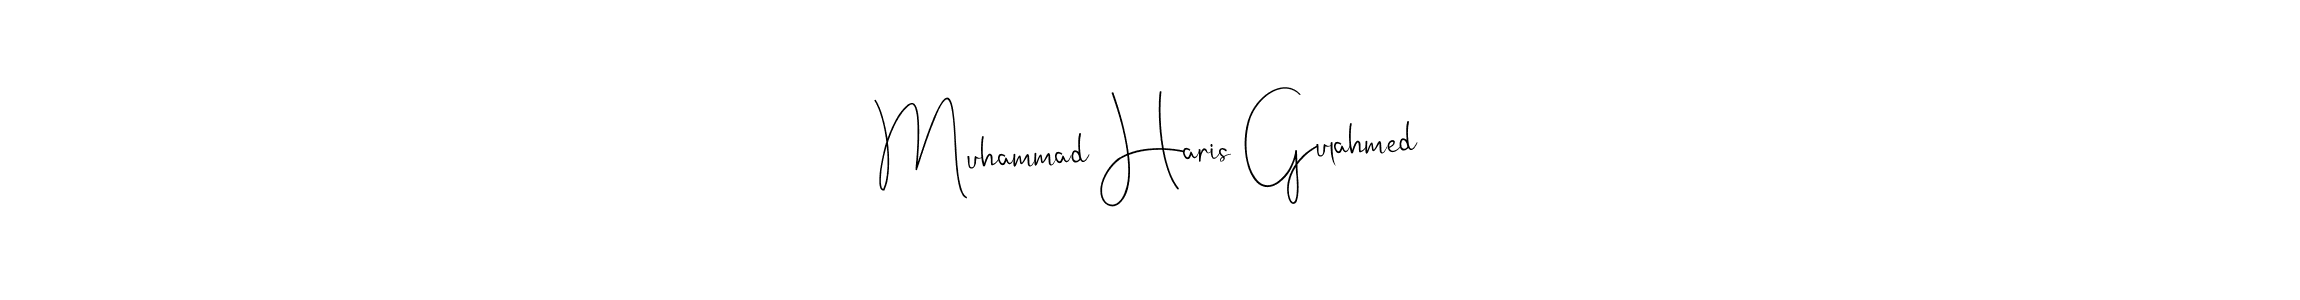 Muhammad Haris Gulahmed